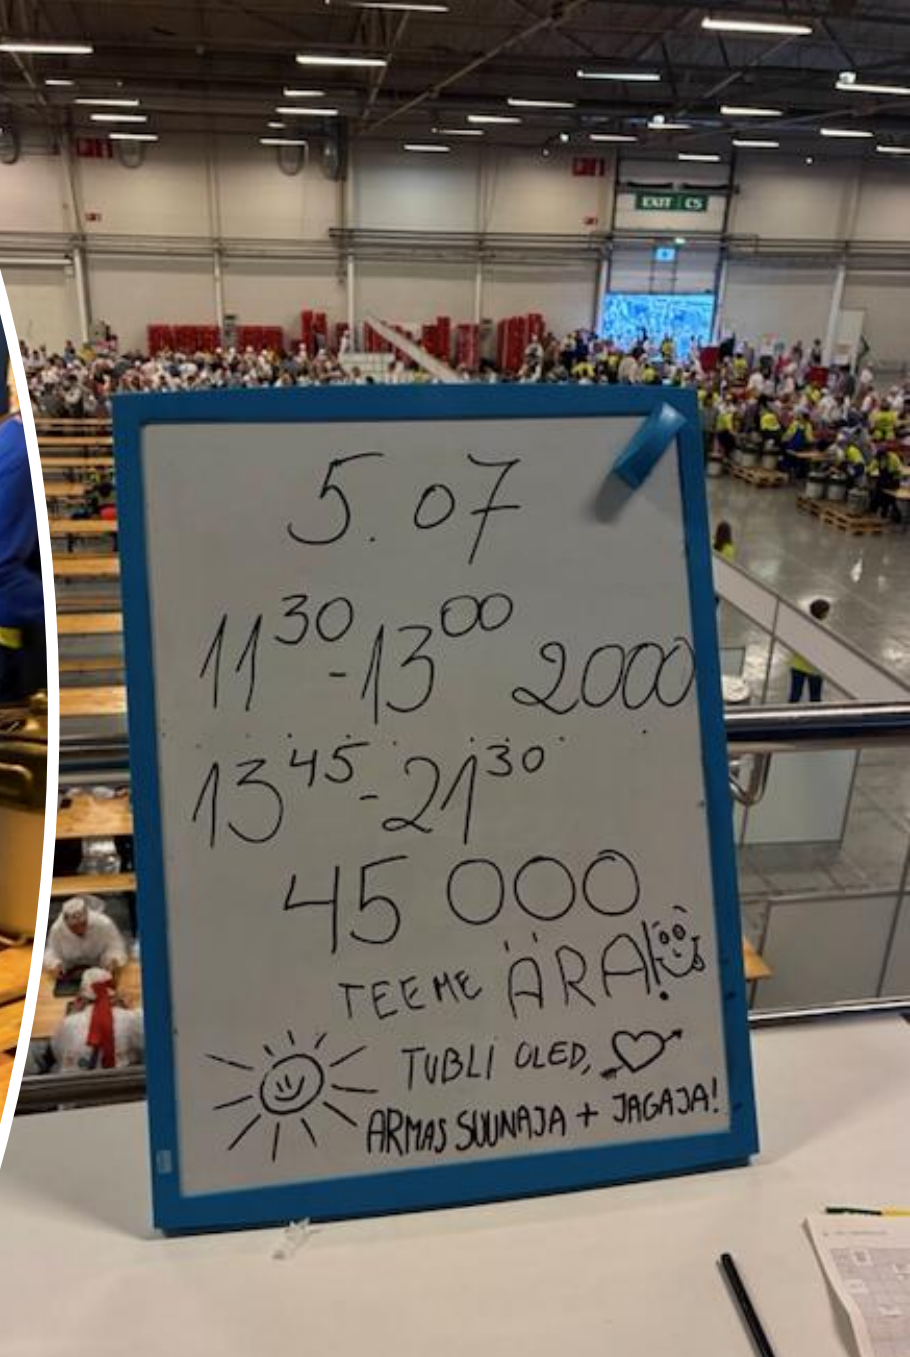 EXIT C5
5.07
11³⁰-13⁰⁰ 2000
13⁴⁵-21³⁰
45 000
TEEME ÄRA!
TUBLI OLED,
ARMAS SUUNAJA + JAGAJA!